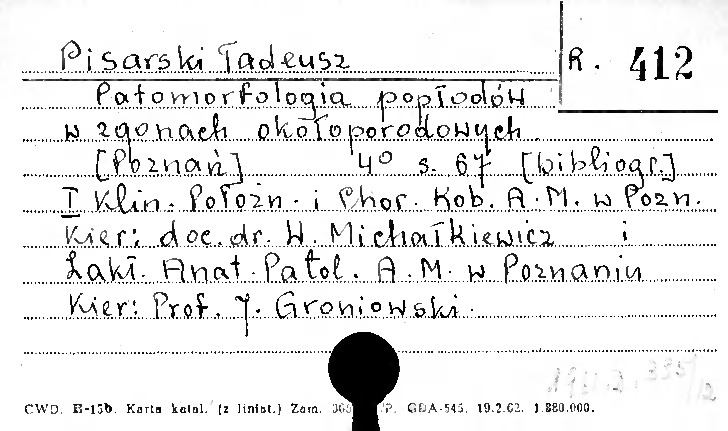 Pisarski Tadeusz
R. 412
Patomorfologia popłodów
w zgonach okołoporodowych
[Poznań] 4° s. 67 [bibliogr.]
I Klin. Położn. i Chor. Kob. A.M. w Pozn.
Kier: doc. dr. W. Michałkiewicz i
Zakł. Anat. Patol. A.M. w Poznaniu
Kier: Prof. J. Groniowski.
CWD. H-15b. Karta katal. (z liniat.) Zam. P. GDA-545. 19.2.62. 1.880.000.